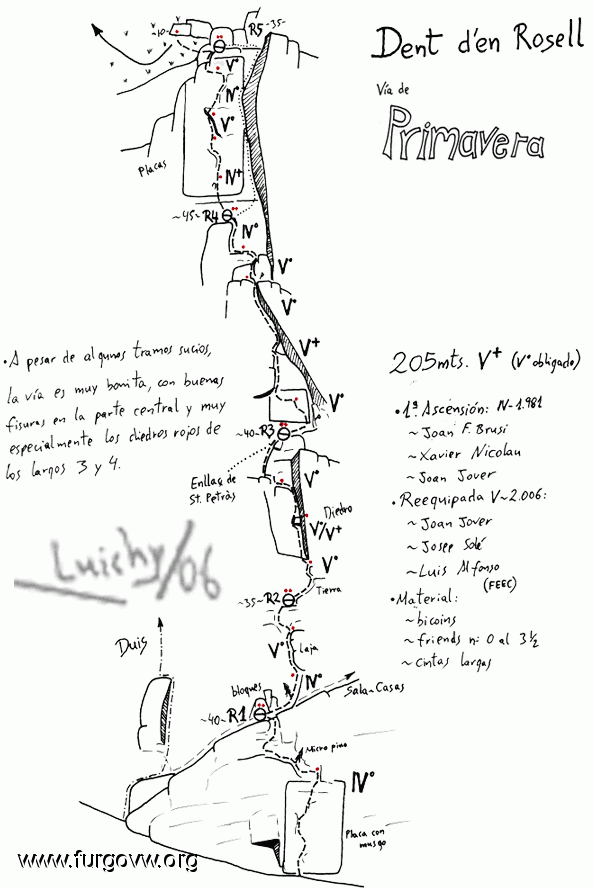 Dent d'en Rosell
Vía de
Primavera
~10~
R5~35~
V°
IV°
V°
Placas
IV+
~45~R4
IV°
V°
V°
V+
• A pesar de algunos tramos sucios,
la vía es muy bonita, con buenas
fisuras en la parte central y muy
especialmente los diedros rojos de
los largos 3 y 4.
205mts. V+ (V° obligado)
• 1ª Ascensión: IV-1.981
~Joan F. Brusi
~Xavier Nicolau
~Joan Jover
• Reequipada V~2.006:
~Joan Jover
~Josep Solé
~Luis Alfonso
(FEEC)
• Material:
~bicoins
~friends nº 0 al 3½
~cintas largas
V°
~40~R3
Enllaç de
St. Petràs
V°
Diedro
V°/V+
V°
Tierra
~35~R2
V°
Laja
IV°
Luichy/06
Duis
bloques
Sala~Casas
~40~R1
Micro pino
IV°
Placa con
musgo
www.furgovw.org